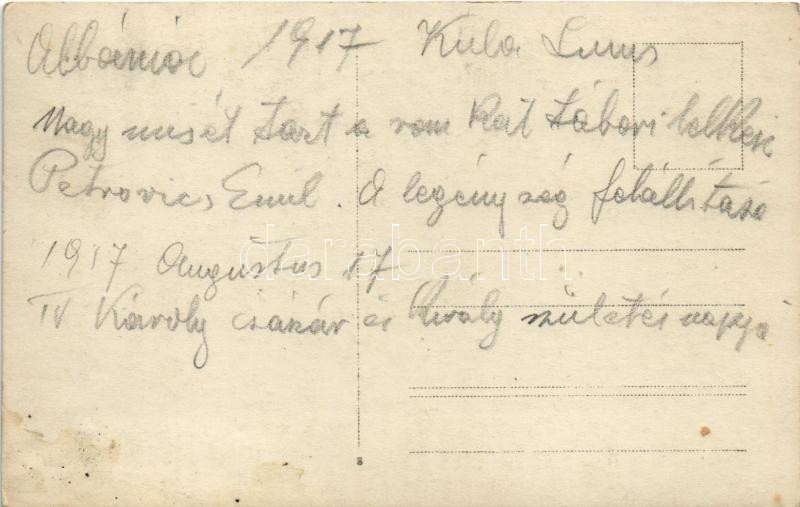 Albánia 1917 Kula Lums
Nagy misét tart a rom Kat tábori lelkész
Petrovics Emil. A legénység felállítása
1917 Augusztus 17.
IV Károly császár és király születés napja
darabanth
8